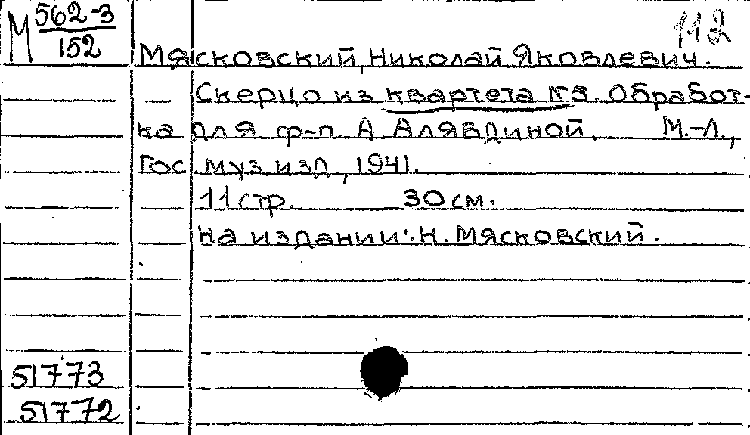 М 562-3
152
112
Мясковский, Николай Яковлевич.
— Скерцо из квартета №5. Обработ-
ка для ф-п. А Алявдиной. М.-Л.,
Гос муз изд, 1941.
11 стр. 30 см.
На издании: Н. Мясковский.
51773
51772